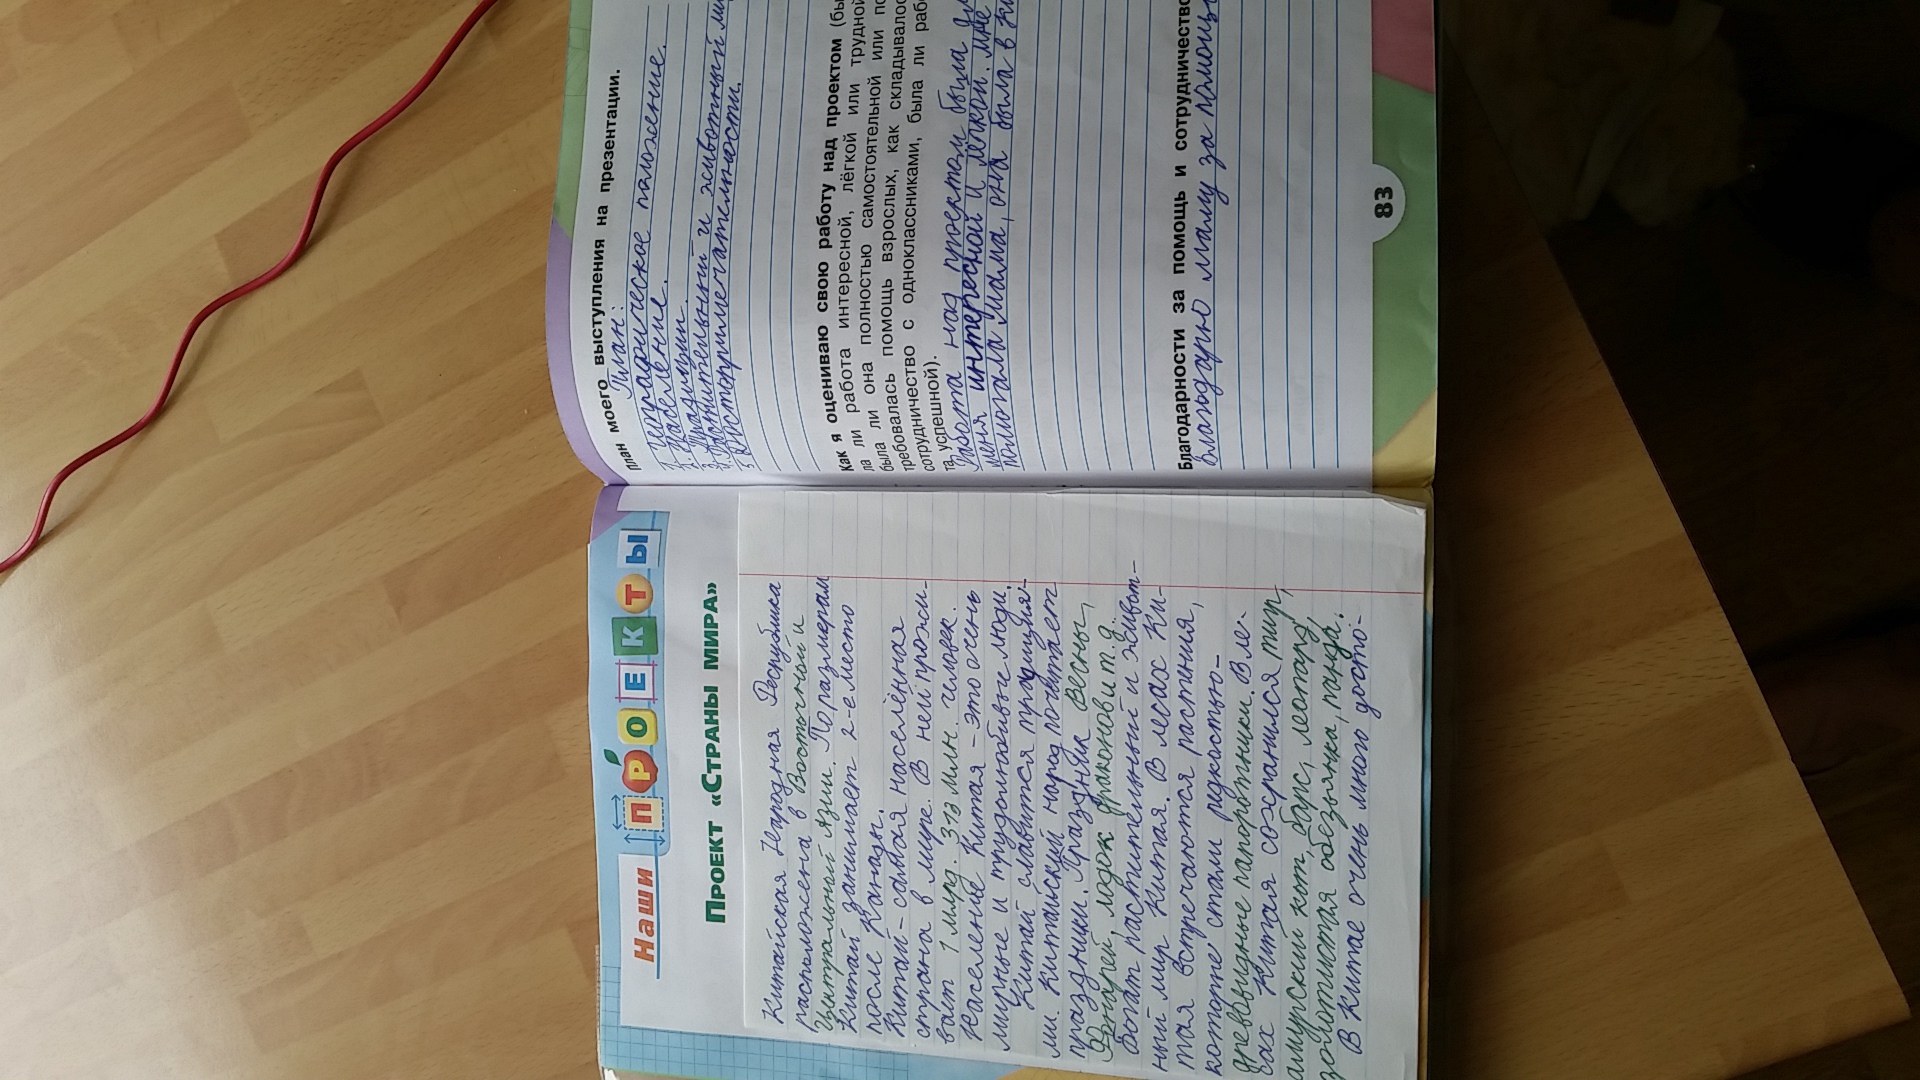 Наши ПРОЕКТЫ
Проект «Страны мира»
Китайская Народная Республика
расположена в Восточной и
Центральной Азии. По размерам
Китай занимает 2-е место
после Канады.
Китай – самая населённая
страна в мире. В ней прожи-
вает 1 млрд. 313 млн. человек.
Население Китая – это очень
мирные и трудолюбивые люди.
Китай славится традиция-
ми. Китайский народ почитает
праздники. Праздник Весны,
Фонарей, лодок драконов и т.д.
Богат растительный и живот-
ный мир Китая. В лесах Ки-
тая встречаются растения,
которые стали редкостью-
древовидные папоротники. В ле-
сах Китая сохранился тигр,
амурский кот, барс, леопард,
золотистая обезьянка, панда.
В Китае очень много досто-
План моего выступления на презентации.
План:
1 Географическое положение.
2. Население.
3. Традиции.
4. Растительный и животный ми
5 Достопримечательности.
Как я оцениваю свою работу над проектом (бы
ла ли работа интересной, лёгкой или трудной
была ли она полностью самостоятельной или по
требовалась помощь взрослых, как складывалос
сотрудничество с одноклассниками, была ли рабо
та успешной).
Работа над проектом была дл
меня интересной и лёгкой. Мне
помогала мама, она была в Ки
Благодарности за помощь и сотрудничество
Благодарю маму за помощь
83